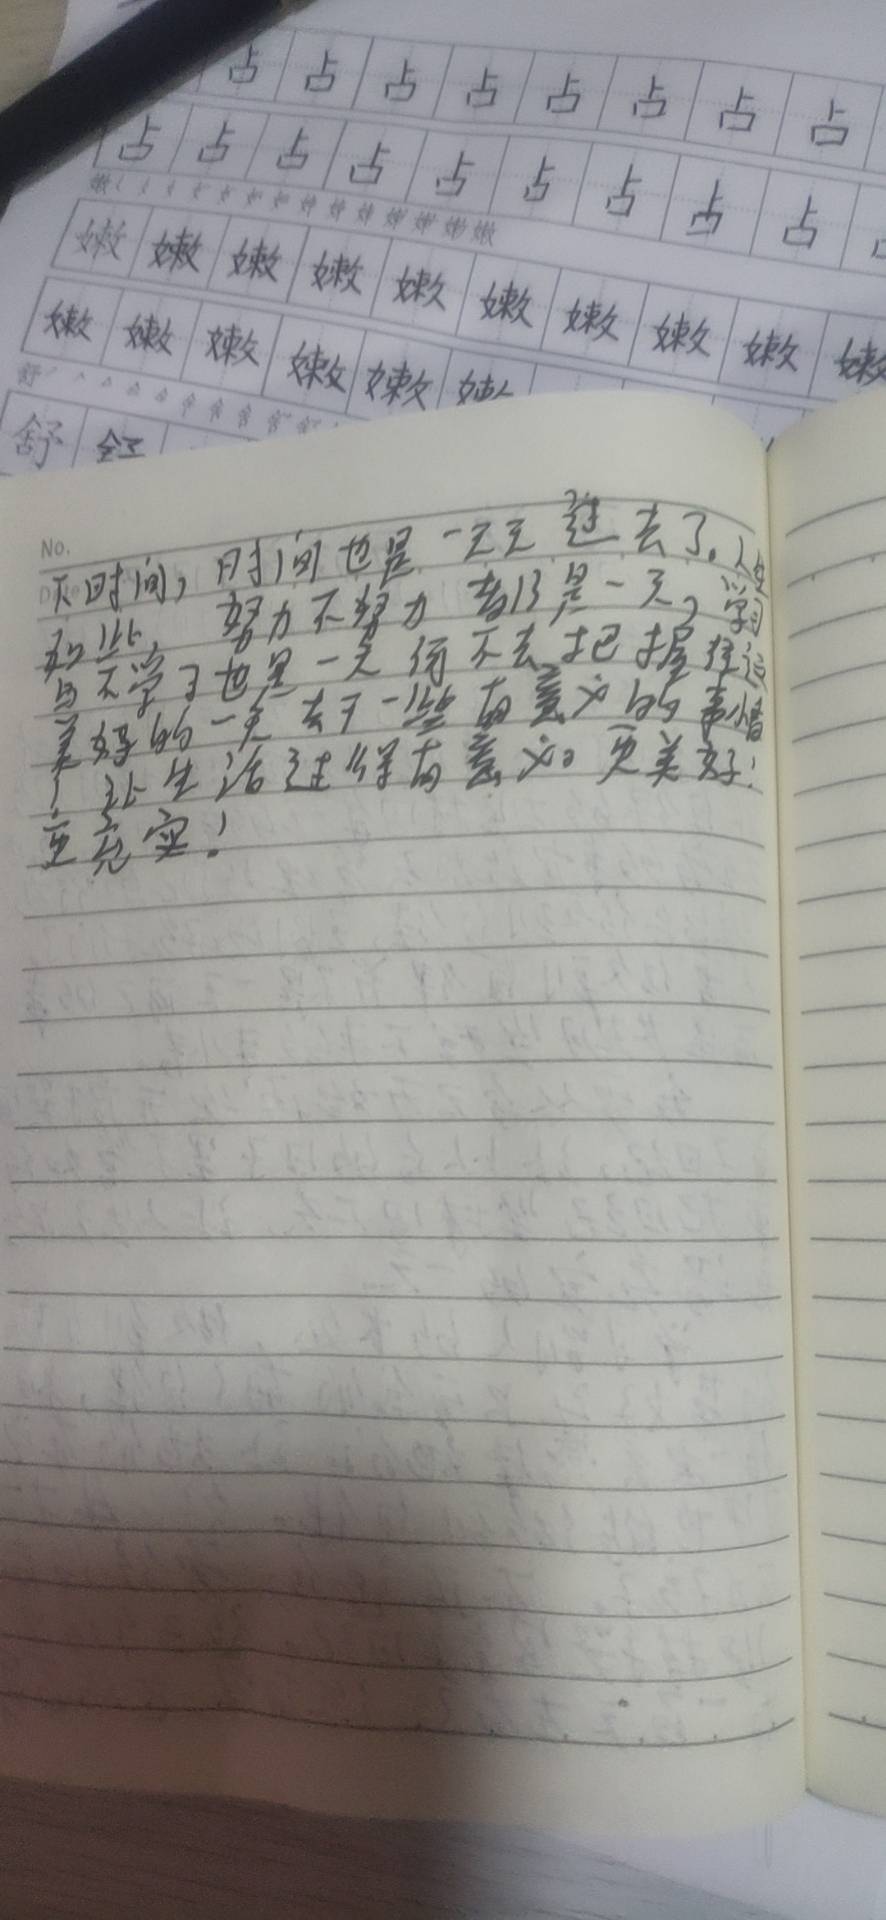 占 占 占 占 占 占 占 占
占 占 占 占 占 占 占 占 占
嫩
嫩 嫩 嫩 嫩 嫩 嫩 嫩 嫩 嫩 嫩
嫩 嫩 嫩 嫩 嫩
舒
舒
No.
天时间，时间也是一天天过去了。人生
如此，努力不努力都是一天，学习
与不学习也是一天何不去把握住这
美好的一天去干一些有意义的事情
！让生活过得有意义。更美好！
更充实！